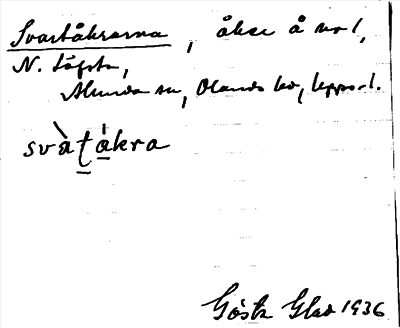 Svartåkrarna, åker å no 1,
N. Löfsta,
Alunda sn, Olands hd, Upps. l.
svàt́ákra
Gösta Glad 1936